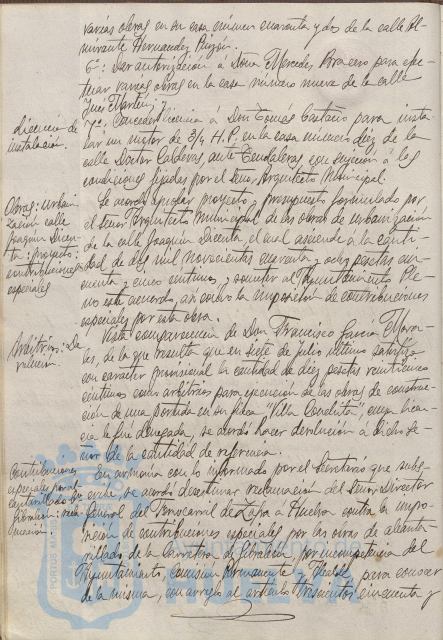 varias obras en su casa número cuarenta y dos de la calle Al-
mirante Hernandez Pinzón.
6º: Dar autorización a Doña Mercedes Borrero para efec-
tuar varias obras en la casa número nueve de la calle
Licencia de
instalación.
7º: Conceder licencia a Don Tomás Castaño para insta-
lar un motor de 3/4 H.P. en la casa número diez de la
calle Doctor Calderas ante Tendaleras con sujeción a las
condiciones fijadas por el Señor Arquitecto Municipal.
Obras: urbani-
zación calle
Joaquín Dicen-
ta: proyecto:
contribuciones
especiales
Se acordó aprobar proyecto y presupuesto formulado por
el Señor Arquitecto Municipal de las obras de urbanización
de la calle Joaquín Dicenta el cual asciende a la canti-
dad de dos mil novecientas cuarenta y ocho pesetas cin-
cuenta y cinco céntimos, y someter al Ayuntamiento Ple-
no este acuerdo, así como la imposición de contribuciones
especiales por esta obra.
Arbitrios: De-
volución.
Vista comparecencia de Don Francisco García Mora-
les, de la que resulta que en siete de Julio último satisfizo
con carácter provisional la cantidad de diez pesetas veinticinco
céntimos como arbitrios para ejecución de las obras de construc-
ción de una portada en su finca "Villa Conchita", cuya licen-
cia le fué denegada, se acordó hacer devolución a dicho se-
ñor de la cantidad de referencia.
Contribuciones
especiales por al-
cantarillado
En armonía con lo informado por el Secretario que subs-
cribe, se acordó desestimar reclamación del Señor Director
General del Ferrocarril de Zafra a Huelva contra la impo-
sición de contribuciones especiales por las obras de alcanta-
rillado de la Carretera de Gibraleón, por incompetencia del
Ayuntamiento, Comisión Permanente y Alcalde para conocer
de la misma, con arreglo al artículo trescientos cincuenta y
PORTUS MARIS
HUELVA